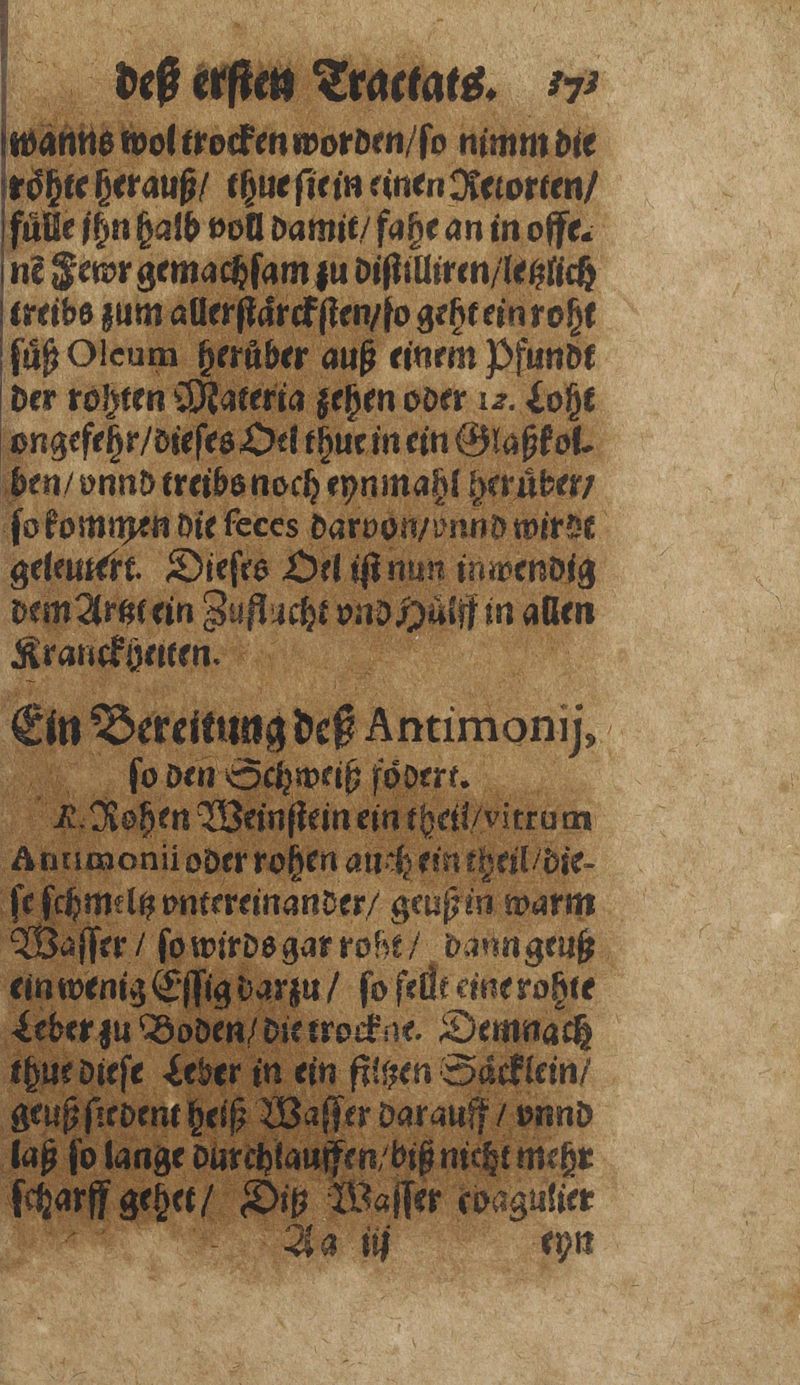 deß ersten Tractats. 373
wanns wol trocken worden/so nimm die
röhte herauß/ thue sie in einen Retorten/
fülle jhn halb voll damit/ fahe an in offe-
nẽ Fewr gemachsam zu distilliren/letzlich
treibs zum allerstärcksten/so geht ein roht
süß Oleum herüber auß einem Pfundt
der rohten Materia zehen oder 12. Loht
ongefehr/dieses Oel thue in ein Glaßkol-
ben/ vnnd treibs noch eynmahl herüber/
so kommen die feces darvon/vnnd wirdt
geleutert. Dieses Oel ist nun inwendig
dem Artzt ein Zuflucht vnd Hülff in allen
Kranckheiten.
Ein Bereitung deß Antimonij,
so den Schweiß födert.
℞. Rohen Weinstein ein theil/vitrum
Antimonii oder rohen auch ein theil/die-
se schmeltz vntereinander/ geuß in warm
Wasser / so wirds gar roht / dann geuß
ein wenig Essig darzu / so fellt eine rohte
Leber zu Boden/ die trockne. Demnach
thue diese Leber in ein filtzen Säcklein/
geuß siedent heiß Wasser darauff / vnnd
laß so lange durchlauffen/biß nicht mehr
scharff gehet / Ditz Wasser coagulier
Aa iij eyn